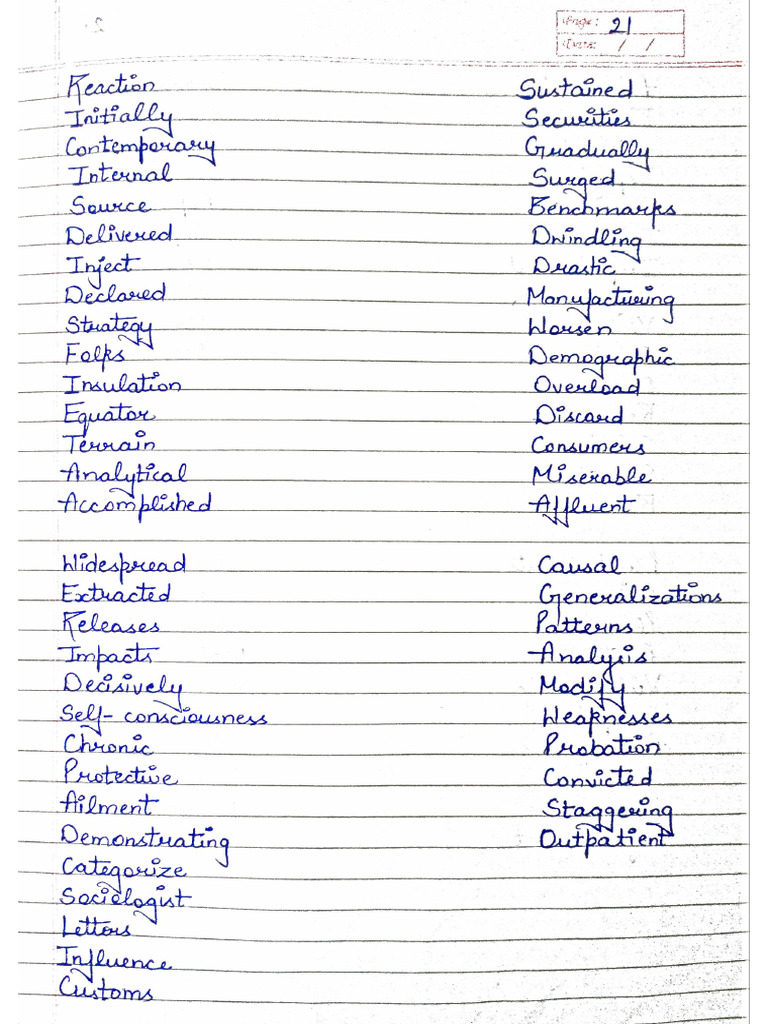 Page: 21
Date: / /
Reaction
Initially
Contemporary
Internal
Source
Delivered
Inject
Declared
Strategy
Folks
Insulation
Equator
Terrain
Analytical
Accomplished
Widespread
Extracted
Releases
Impacts
Decisively
Self-consciousness
Chronic
Protective
Ailment
Demonstrating
Categorize
Sociologist
Letters
Influence
Customs
Sustained
Securities
Gradually
Surged
Benchmarks
Dwindling
Drastic
Manufacturing
Worsen
Demographic
Overload
Discard
Consumers
Miserable
Affluent
Causal
Generalizations
Patterns
Analysis
Modify
Weaknesses
Probation
Convicted
Staggering
Outpatient